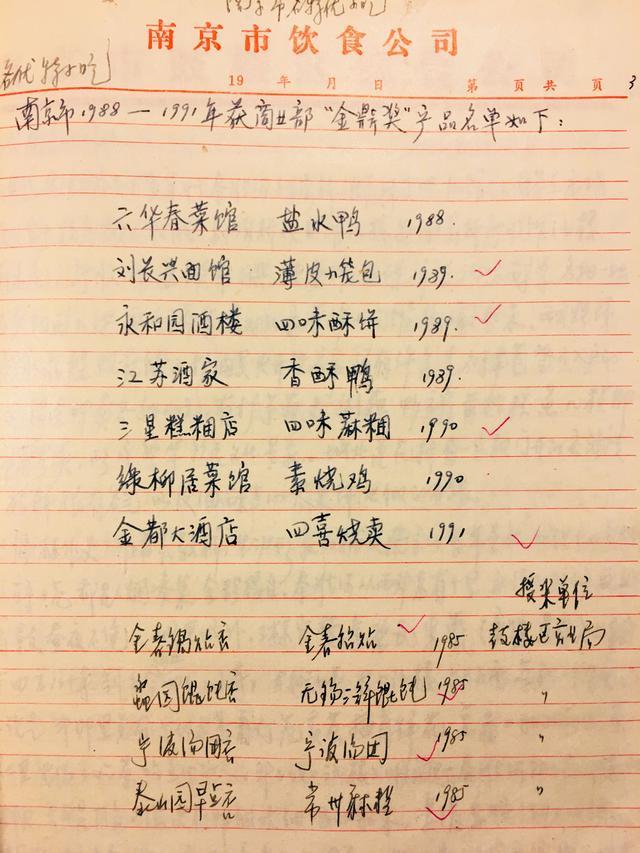 南京市名特优小吃
名优特小吃
南京市饮食公司
19 年 月 日 第 页共 页 3
南京市1988—1991年获商业部"金鼎奖"产品名单如下:
六华春菜馆 盐水鸭 1988.
刘长兴面馆 薄皮小笼包 1989. ✓
永和园酒楼 四味酥饼 1989. ✓
江苏酒家 香酥鸭 1989.
三星糕糰店 四味蔴糰 1990 ✓
绿柳居菜馆 素烧鸡 1990
金都大酒店 四喜烧卖 1991 ✓
授奖单位
金春锅贴店 金春锅贴 ✓ 1985 鼓楼区商业局
馄饨店 无锡三鲜馄饨 1985 ✓ 〃
宁波汤团店 宁波汤团 ✓ 1985 〃
泰山园早点店 常州蔴糕 ✓ 1985 〃